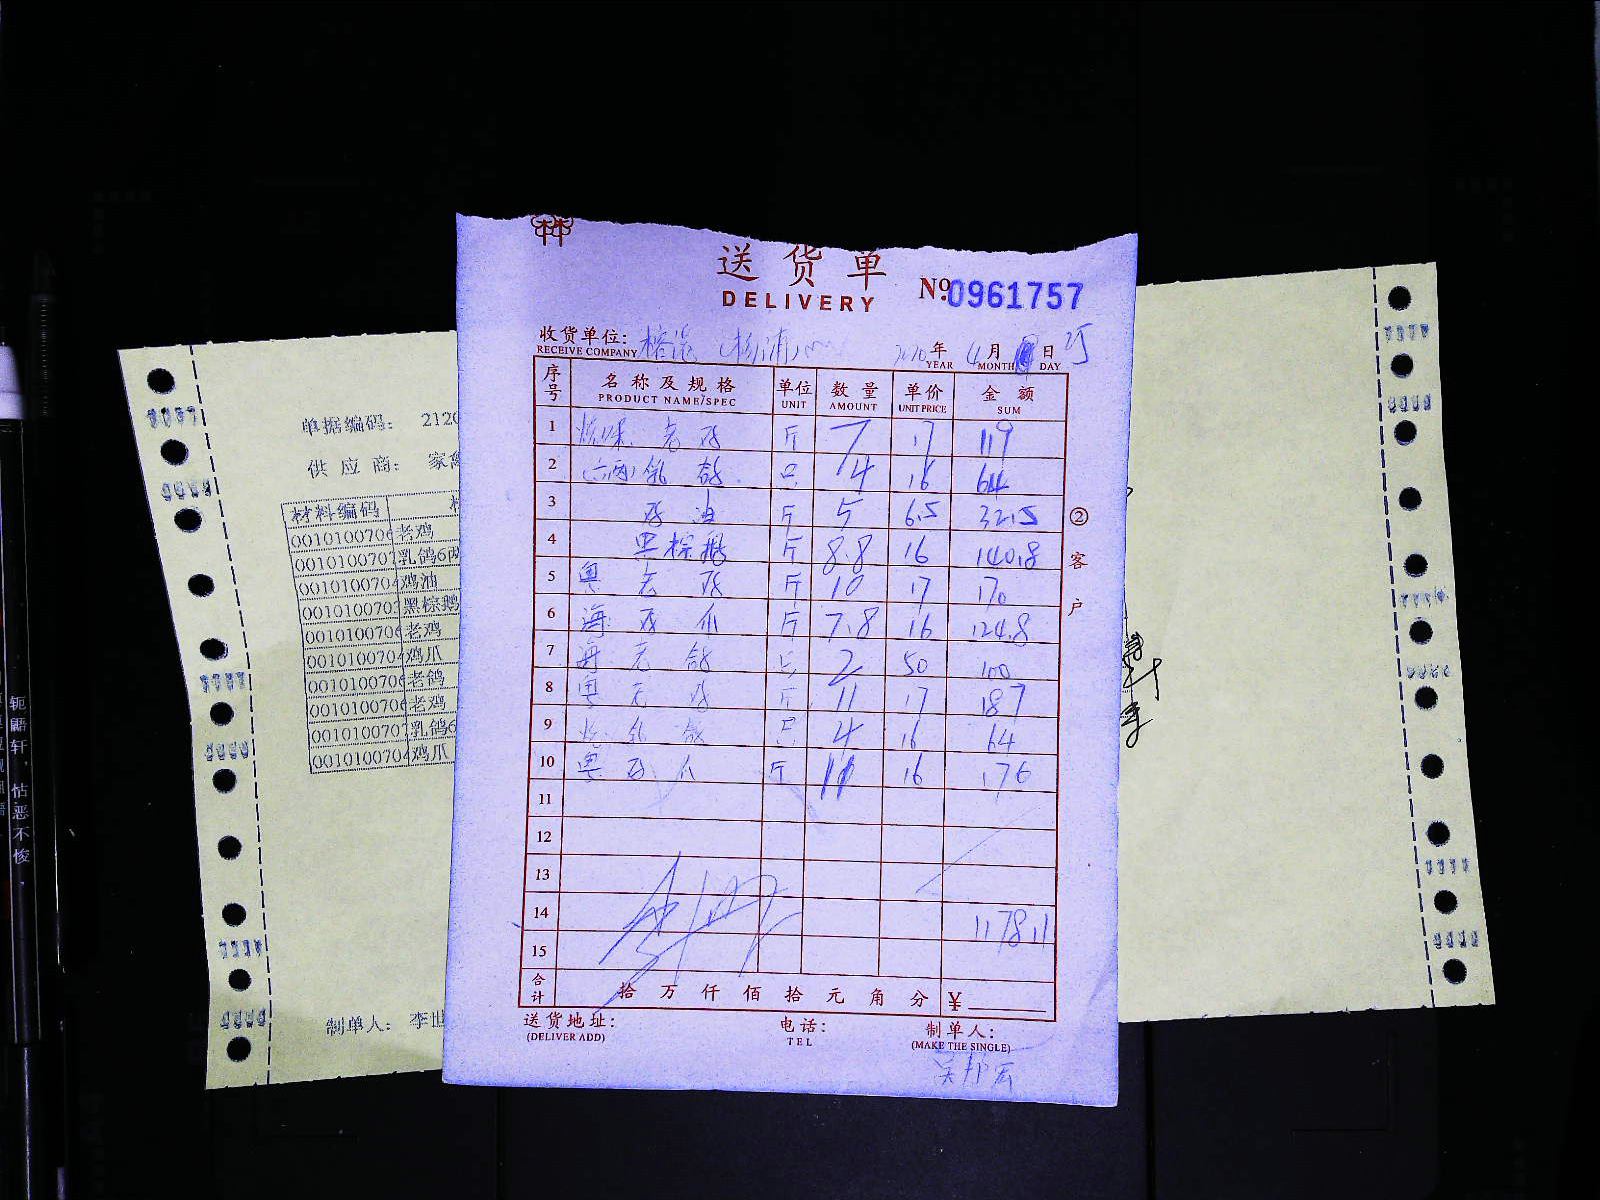 送货单
DELIVERY
№ 0961757
收货单位: (杨浦)
RECEIVE COMPANY
年 4月 日 25
YEAR MONTH DAY
序号 名称及规格 单位 数量 单价 金额
PRODUCT NAME/SPEC UNIT AMOUNT UNIT PRICE SUM
1 老鸡 斤 7 17 119
2 (六两)乳鸽 只 4 16 64
3 鸡油 斤 5 6.5 32.5
4 黑棕鹅 斤 8.8 16 140.8
5 粤 老鸡 斤 10 17 170
6 海 鸡爪 斤 7.8 16 124.8
7 海 老鸽 只 2 50 100
8 粤 老鸡 斤 11 17 187
9 乳鸽 只 4 16 64
10 粤 鸡爪 斤 11 16 176
11
12
13
14 1178.1
15
合计 拾 万 仟 佰 拾 元 角 分 ¥
送货地址: 电话: 制单人:
(DELIVER ADD) TEL (MAKE THE SINGLE)
②客户
单据编码: 212
供应商: 家
材料编码
0010100706 老鸡
001010070 乳鸽6两
001010070 鸡油
001010070 黑棕鹅
0010100706 老鸡
001010070 鸡爪
0010100706 老鸽
0010100706 老鸡
001010070 乳鸽6
001010070 鸡爪
制单人: 李世
轭龉轩,怙恶不悛